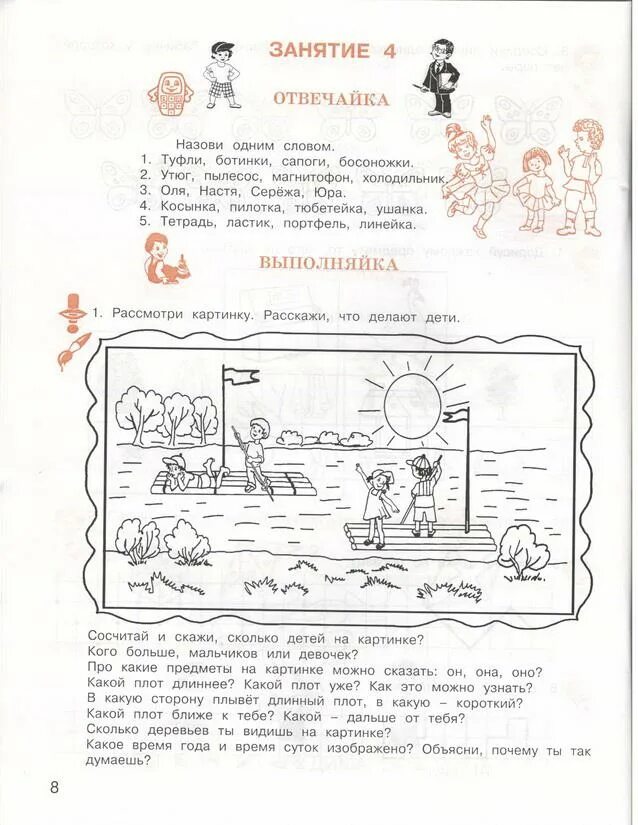 ЗАНЯТИЕ 4
ОТВЕЧАЙКА
Назови одним словом.
1. Туфли, ботинки, сапоги, босоножки.
2. Утюг, пылесос, магнитофон, холодильник.
3. Оля, Настя, Серёжа, Юра.
4. Косынка, пилотка, тюбетейка, ушанка.
5. Тетрадь, ластик, портфель, линейка.
ВЫПОЛНЯЙКА
1. Рассмотри картинку. Расскажи, что делают дети.
Сосчитай и скажи, сколько детей на картинке?
Кого больше, мальчиков или девочек?
Про какие предметы на картинке можно сказать: он, она, оно?
Какой плот длиннее? Какой плот уже? Как это можно узнать?
В какую сторону плывёт длинный плот, в какую – короткий?
Какой плот ближе к тебе? Какой – дальше от тебя?
Сколько деревьев ты видишь на картинке?
Какое время года и время суток изображено? Объясни, почему ты так
думаешь?
8